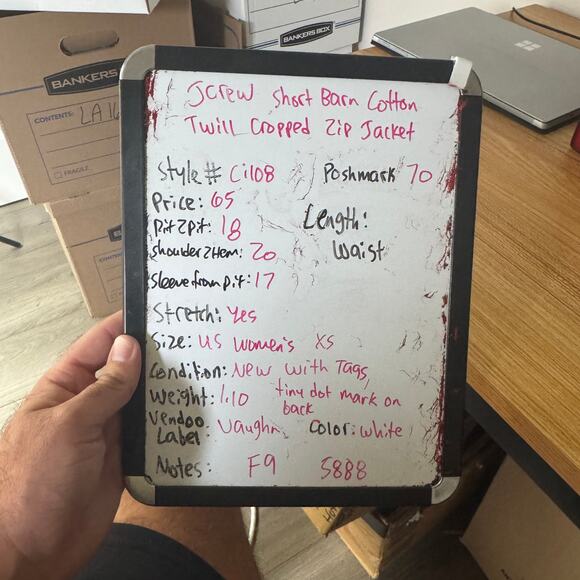 BANKERS BOX
BANKERS
CONTENTS: LA16
FRAGILE
JCrew Short Barn Cotton
Twill Cropped Zip Jacket
Style # Ci108 Poshmark 70
Price: 65
Pit2Pit: 18 Length:
Shoulder2Hem: 20 Waist
Sleeve from Pit: 17
Stretch: Yes
Size: US Women's XS
Condition: New With Tags,
Weight: 1.10 tiny dot mark on
back
Vendoo
Label: Vaughn Color: white
Notes: F9 5888